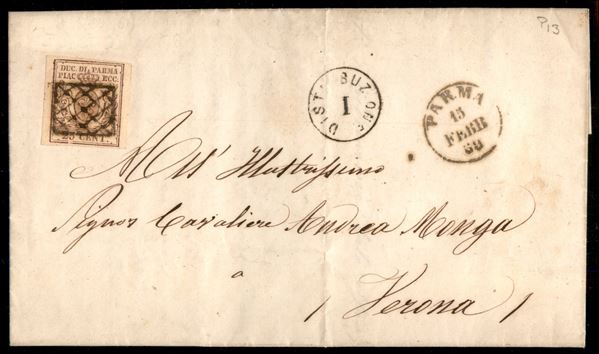 P13
DUC. DI PARMA
PIAC. ECC.
25 CENT.
DISTRIBUZIONE
I
PARMA
15
FEBB
59
All' Illustrissimo
Signor Cavaliere Andrea Monga
a
/ Verona /